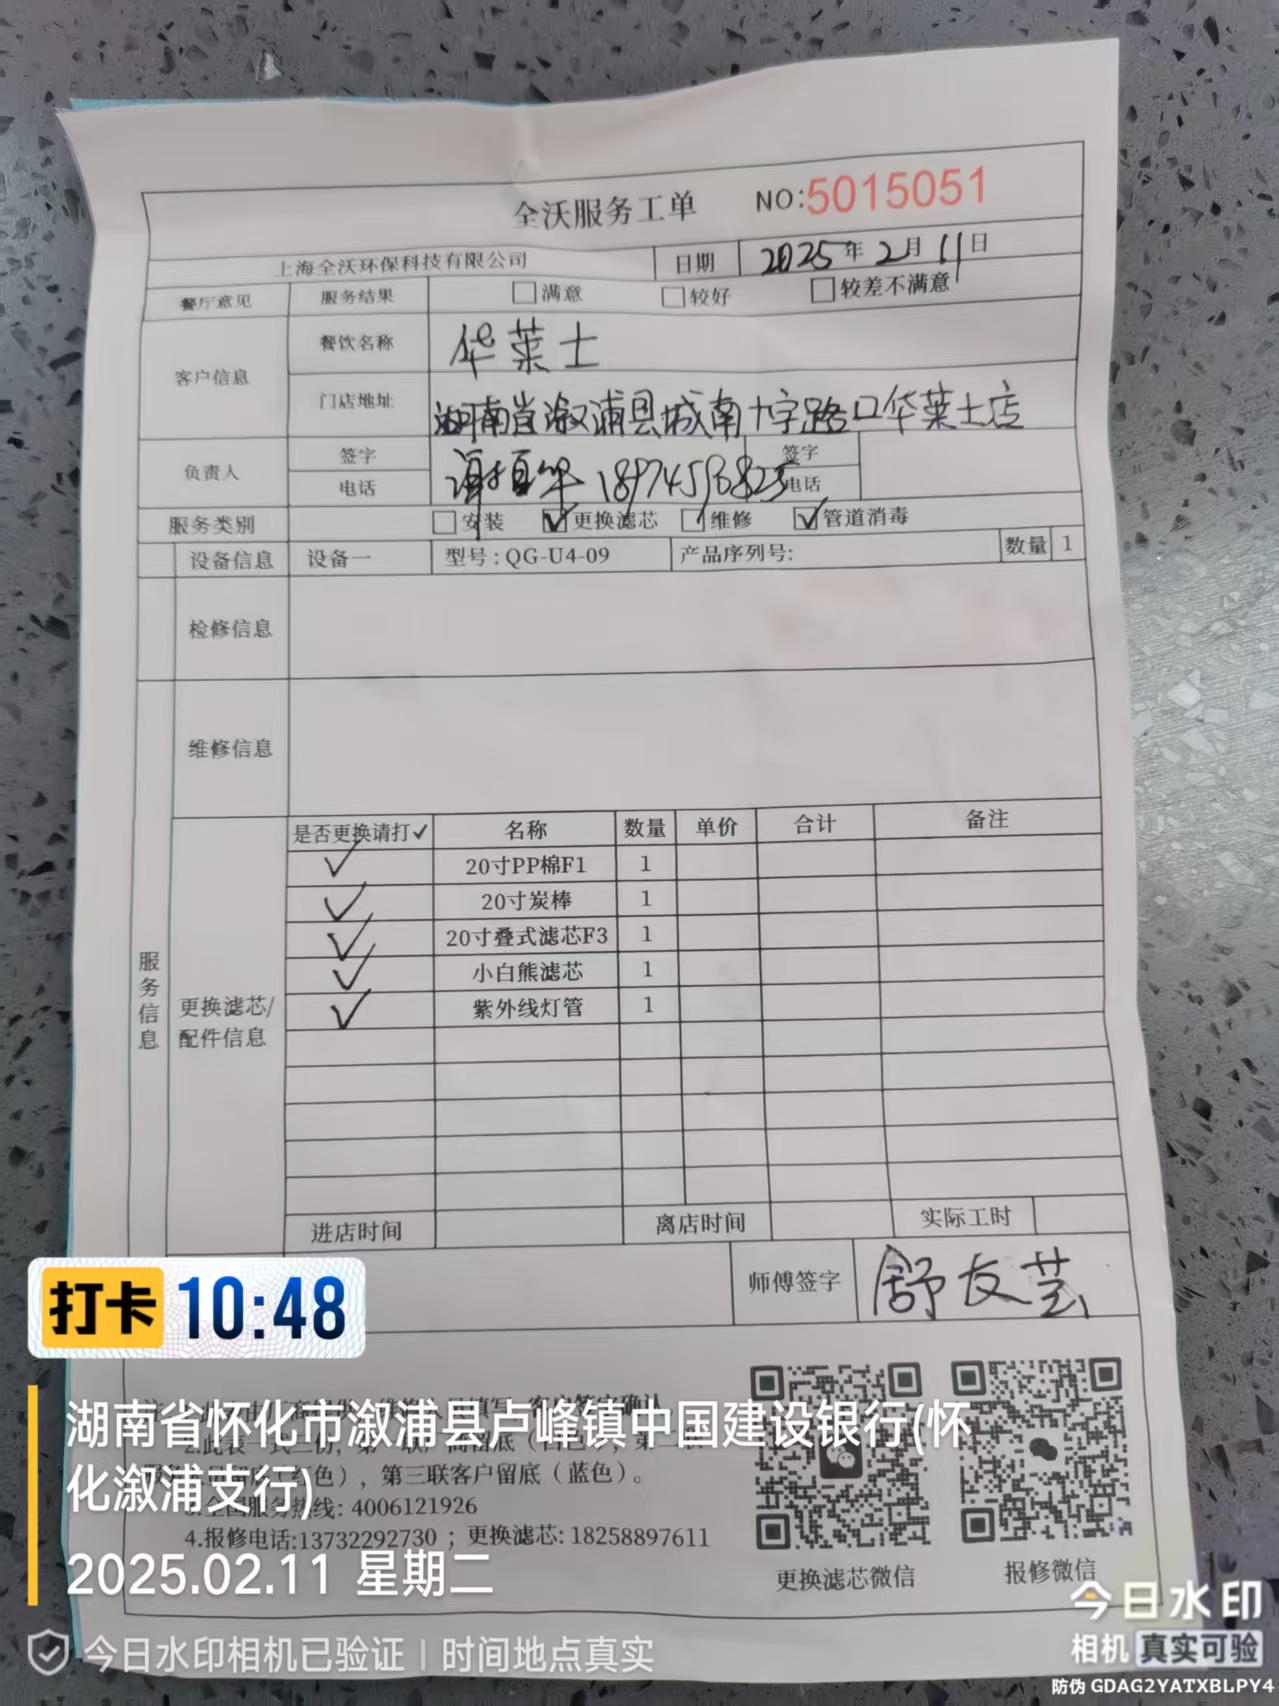 全沃服务工单 NO:5015051
上海全沃环保科技有限公司 日期 2025年2月11日
餐厅意见 服务结果 □满意 □较好 □较差不满意
客户信息 餐饮名称 华莱士
门店地址 湖南省溆浦县城南十字路口华莱士店
负责人 签字 签字
电话 电话
服务类别 □安装 ☑更换滤芯 □维修 ☑管道消毒
设备信息 设备一 型号:QG-U4-09 产品序列号: 数量 1
检修信息
维修信息
服务信息
更换滤芯/
配件信息
是否更换请打✓ 名称 数量 单价 合计 备注
✓ 20寸PP棉F1 1
✓ 20寸炭棒 1
✓ 20寸叠式滤芯F3 1
✓ 小白熊滤芯 1
✓ 紫外线灯管 1
进店时间 离店时间 实际工时
师傅签字 舒友芸
打卡 10:48
湖南省怀化市溆浦县卢峰镇中国建设银行(怀
化溆浦支行)
2025.02.11 星期二
，第三联客户留底（蓝色）。
3.全国服务热线: 4006121926
4.报修电话:13732292730 ；更换滤芯: 18258897611
更换滤芯微信 报修微信
今日水印相机已验证 | 时间地点真实
今日水印
相机 真实可验
防伪 GDAG2YATXBLPY4